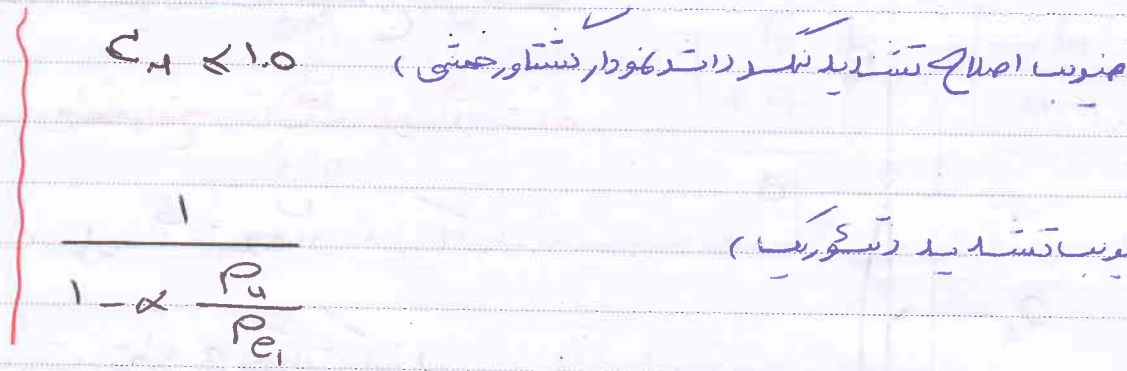 ضریب اصلاح تشدید لنگر (اثر نمودار گشتاور خمشی) C_m ≤ 1.0
ضریب تشدید (تئوریک)
1 / (1 - α P_u / P_e1)